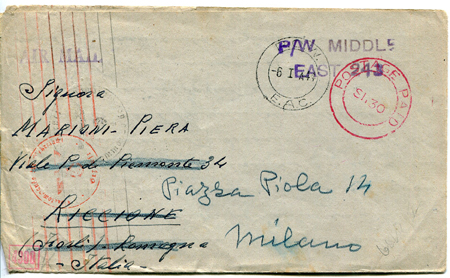 AIR MAIL
P/W MIDDLE
EAST 243
6 I 44
E.A.C.
POSTAGE PAID
SL.30
Signora
MARIONI PIERA
Viale P. di Piemonte 34
RICCIONE
(Forlì) Romagna
- Italia -
Piazza Piola 14
Milano